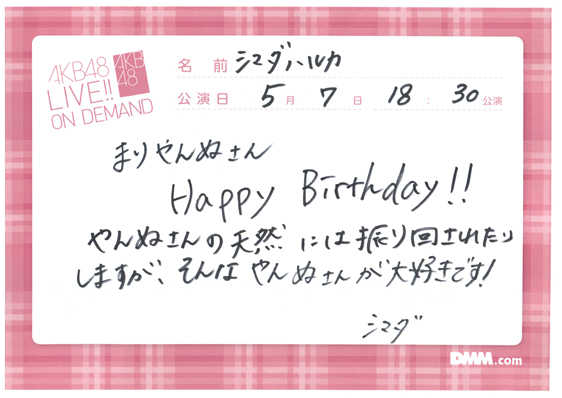 AKB48
LIVE!!
ON DEMAND
AKB
48
名前 シマダハルカ
公演日 5月 7日 18:30公演
まりやんぬさん
Happy Birthday!!
やんぬさんの天然には振り回されたり
しますが、そんなやんぬさんが大好きです!
シマダ
DMM.com